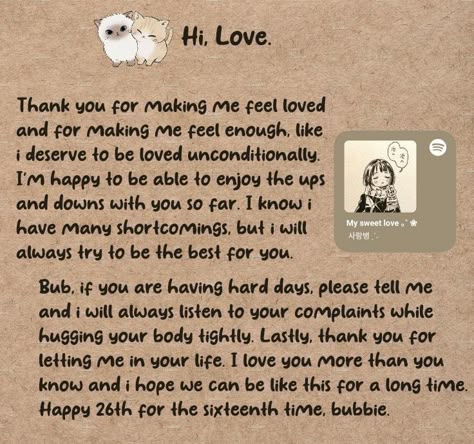 Hi, Love.
Thank you for making me feel loved
and for making me feel enough, like
i deserve to be loved unconditionally.
I'm happy to be able to enjoy the ups
and downs with you so far. I know i
have many shortcomings, but i will
always try to be the best for you.
My sweet love ｡ﾟ❀
사랑병 ˎˊ-
Bub, if you are having hard days, please tell me
and i will always listen to your complaints while
hugging your body tightly. Lastly, thank you for
letting me in your life. I love you more than you
know and i hope we can be like this for a long time.
Happy 26th for the sixteenth time, bubbie.